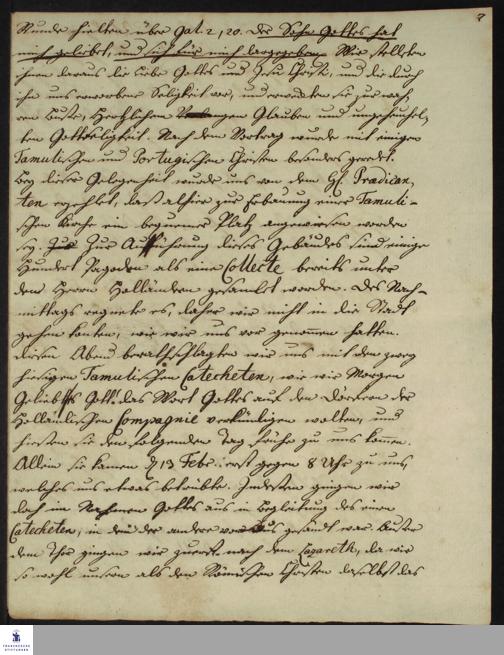 Stunde hielten über Gal. 2, 20. Der Sohn Gottes hat
mich geliebet, und sich für mich dargegeben. Wir stelleten
ihnen daraus die Liebe Gottes und Jesu Christi, und die durch
ihn uns erworbene Seligkeit vor, und erweckten sie zur wah-
ren Buße, Hertzlichem Glauben und ungeheuchel-
ten Gottseligkeit. Nach dem Vortrag wurde mit einigen
Tamulischen und Portugisischen Christen besonders geredet.
Bey dieser Gelegenheit wurde uns von dem H. Predican-
ten erzehlet, daß alhier zur Erbauung einer Tamuli-
schen Kirche ein bequemer Platz angewiesen worden
sey. Zur Aufführung dieses Gebäudes sind einige
Hundert Pagoden als eine Collecte bereits unter
den Herren Holländern gesamlet worden. Des Nach-
mittags regnete es, daher wir nicht in die Stadt
gehen konten, wie wir uns vor genommen hatten.
Diesen Abend berathschlagten wir uns mit den zwey
hiesigen Tamulischen Catecheten, wie wir Morgen
Geliebts Gott das Wort Gottes auf den Dörfern der
Holländischen Compagnie verkündigen wolten, und
hießen sie den folgenden Tag frühe zu uns kommen.
Allein sie kamen d 13 Febr. erst gegen 8 Uhr zu uns,
welches uns etwas betrübte. Indessen gingen wir
doch im Nahmen Gottes aus in Begleitung des einen
Catecheten, in dem der andere voraus gesandt war. Außer
dem Thor gingen wir zuerst nach dem Lazareth, da wir
so wohl unsern als den Römischen Christen daselbst das
FRANCKESCHE
STIFTUNGEN